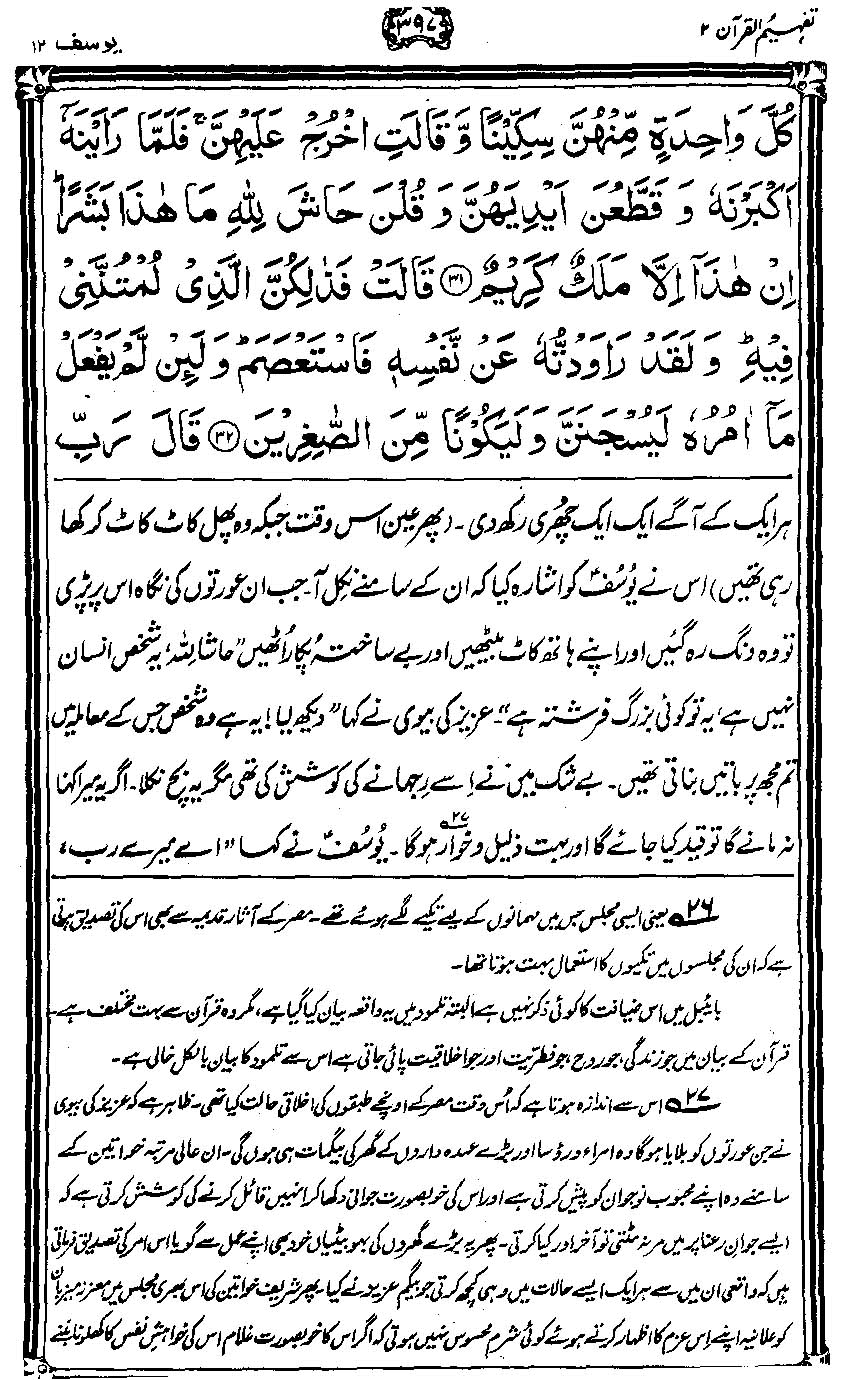 تفہیم القرآن ۲
۳۹۷
یوسف ۱۲
كُلَّ وَاحِدَةٍ مِّنْهُنَّ سِكِّيْنًا وَّقَالَتِ اخْرُجْ عَلَيْهِنَّ ۚ فَلَمَّا رَاَيْنَهٗٓ
اَكْبَرْنَهٗ وَ قَطَّعْنَ اَيْدِيَهُنَّ وَ قُلْنَ حَاشَ لِلّٰهِ مَا هٰذَا بَشَرًا ؕ
اِنْ هٰذَآ اِلَّا مَلَكٌ كَرِيْمٌ ﴿۳۱﴾ قَالَتْ فَذٰلِكُنَّ الَّذِيْ لُمْتُنَّنِيْ
فِيْهِ ؕ وَ لَقَدْ رَاوَدْتُّهٗ عَنْ نَّفْسِهٖ فَاسْتَعْصَمَ ؕ وَ لَىِٕنْ لَّمْ يَفْعَلْ
مَآ اٰمُرُهٗ لَيُسْجَنَنَّ وَ لَيَكُوْنًا مِّنَ الصّٰغِرِيْنَ ﴿۳۲﴾ قَالَ رَبِّ
ہر ایک کے آگے ایک ایک چھُری رکھ دی۔ (پھر عین اس وقت جبکہ وہ پھل کاٹ کاٹ کر کھا
رہی تھیں) اس نے یُوسُفؑ کو اشارہ کیا کہ ان کے سامنے نکل آ۔ جب ان عورتوں کی نگاہ اس پر پڑی
تو وہ دنگ رہ گئیں اور اپنے ہاتھ کاٹ بیٹھیں اور بے ساختہ پُکار اُٹھیں ”حاشا لِلّٰہ، یہ شخص انسان
نہیں ہے، یہ تو کوئی بزرگ فرشتہ ہے“۔ عزیز کی بیوی نے کہا ”دیکھ لیا! یہ ہے وہ شخص جس کے معاملہ میں
تم مجھ پر باتیں بناتی تھیں۔ بے شک میں نے اِسے رجھانے کی کوشش کی تھی مگر یہ بچ نکلا۔ اگر یہ میرا کہنا
نہ مانے گا تو قید کیا جائے گا اور بہت ذلیل و خوار ہوگا ۲۷؎۔ یُوسُفؑ نے کہا ”اے میرے رب،
۲۶؎ یعنی ایسی مجلس جس میں مہمانوں کے لیے تکیے لگے ہوئے تھے۔ مصر کے آثار قدیمہ سے بھی اس کی تصدیق ہوتی
ہے کہ ان کی مجلسوں میں تکیوں کا استعمال بہت ہوتا تھا۔
بائیبل میں اس ضیافت کا کوئی ذکر نہیں ہے البتہ تلمود میں یہ واقعہ بیان کیا گیا ہے، مگر وہ قرآن سے بہت مختلف ہے۔
قرآن کے بیان میں جو زندگی، جو روح، جو فطریّت اور جو اخلاقیت پائی جاتی ہے اس سے تلمود کا بیان بالکل خالی ہے۔
۲۷؎ اس سے اندازہ ہوتا ہے کہ اُس وقت مصر کے اونچے طبقوں کی اخلاقی حالت کیا تھی۔ ظاہر ہے کہ عزیز کی بیوی
نے جن عورتوں کو بلایا ہوگا وہ امراء و رؤسا اور بڑے عہدہ داروں کے گھر کی بیگمات ہی ہوں گی۔ ان عالی مرتبہ خواتین کے
سامنے وہ اپنے محبوب نوجوان کو پیش کرتی ہے اور اس کی خوبصورت جوانی دکھا کر انہیں قائل کرنے کی کوشش کرتی ہے کہ
ایسے جوانِ رعنا پر میں مر نہ مٹتی تو آخر اور کیا کرتی۔ پھر یہ بڑے گھروں کی بہو بیٹیاں خود بھی اپنے عمل سے گویا اس امر کی تصدیق فرماتی
ہیں کہ واقعی ان میں سے ہر ایک ایسے حالات میں وہی کچھ کرتی جو بیگم عزیز نے کیا۔ پھر شریف خواتین کی اس بھری مجلس میں معزز میزبان
کو علانیہ اپنے اس عزم کا اظہار کرتے ہوئے کوئی شرم محسوس نہیں ہوتی کہ اگر اس کا خوبصورت غلام اس کی خواہشِ نفس کا کھلونا بننے